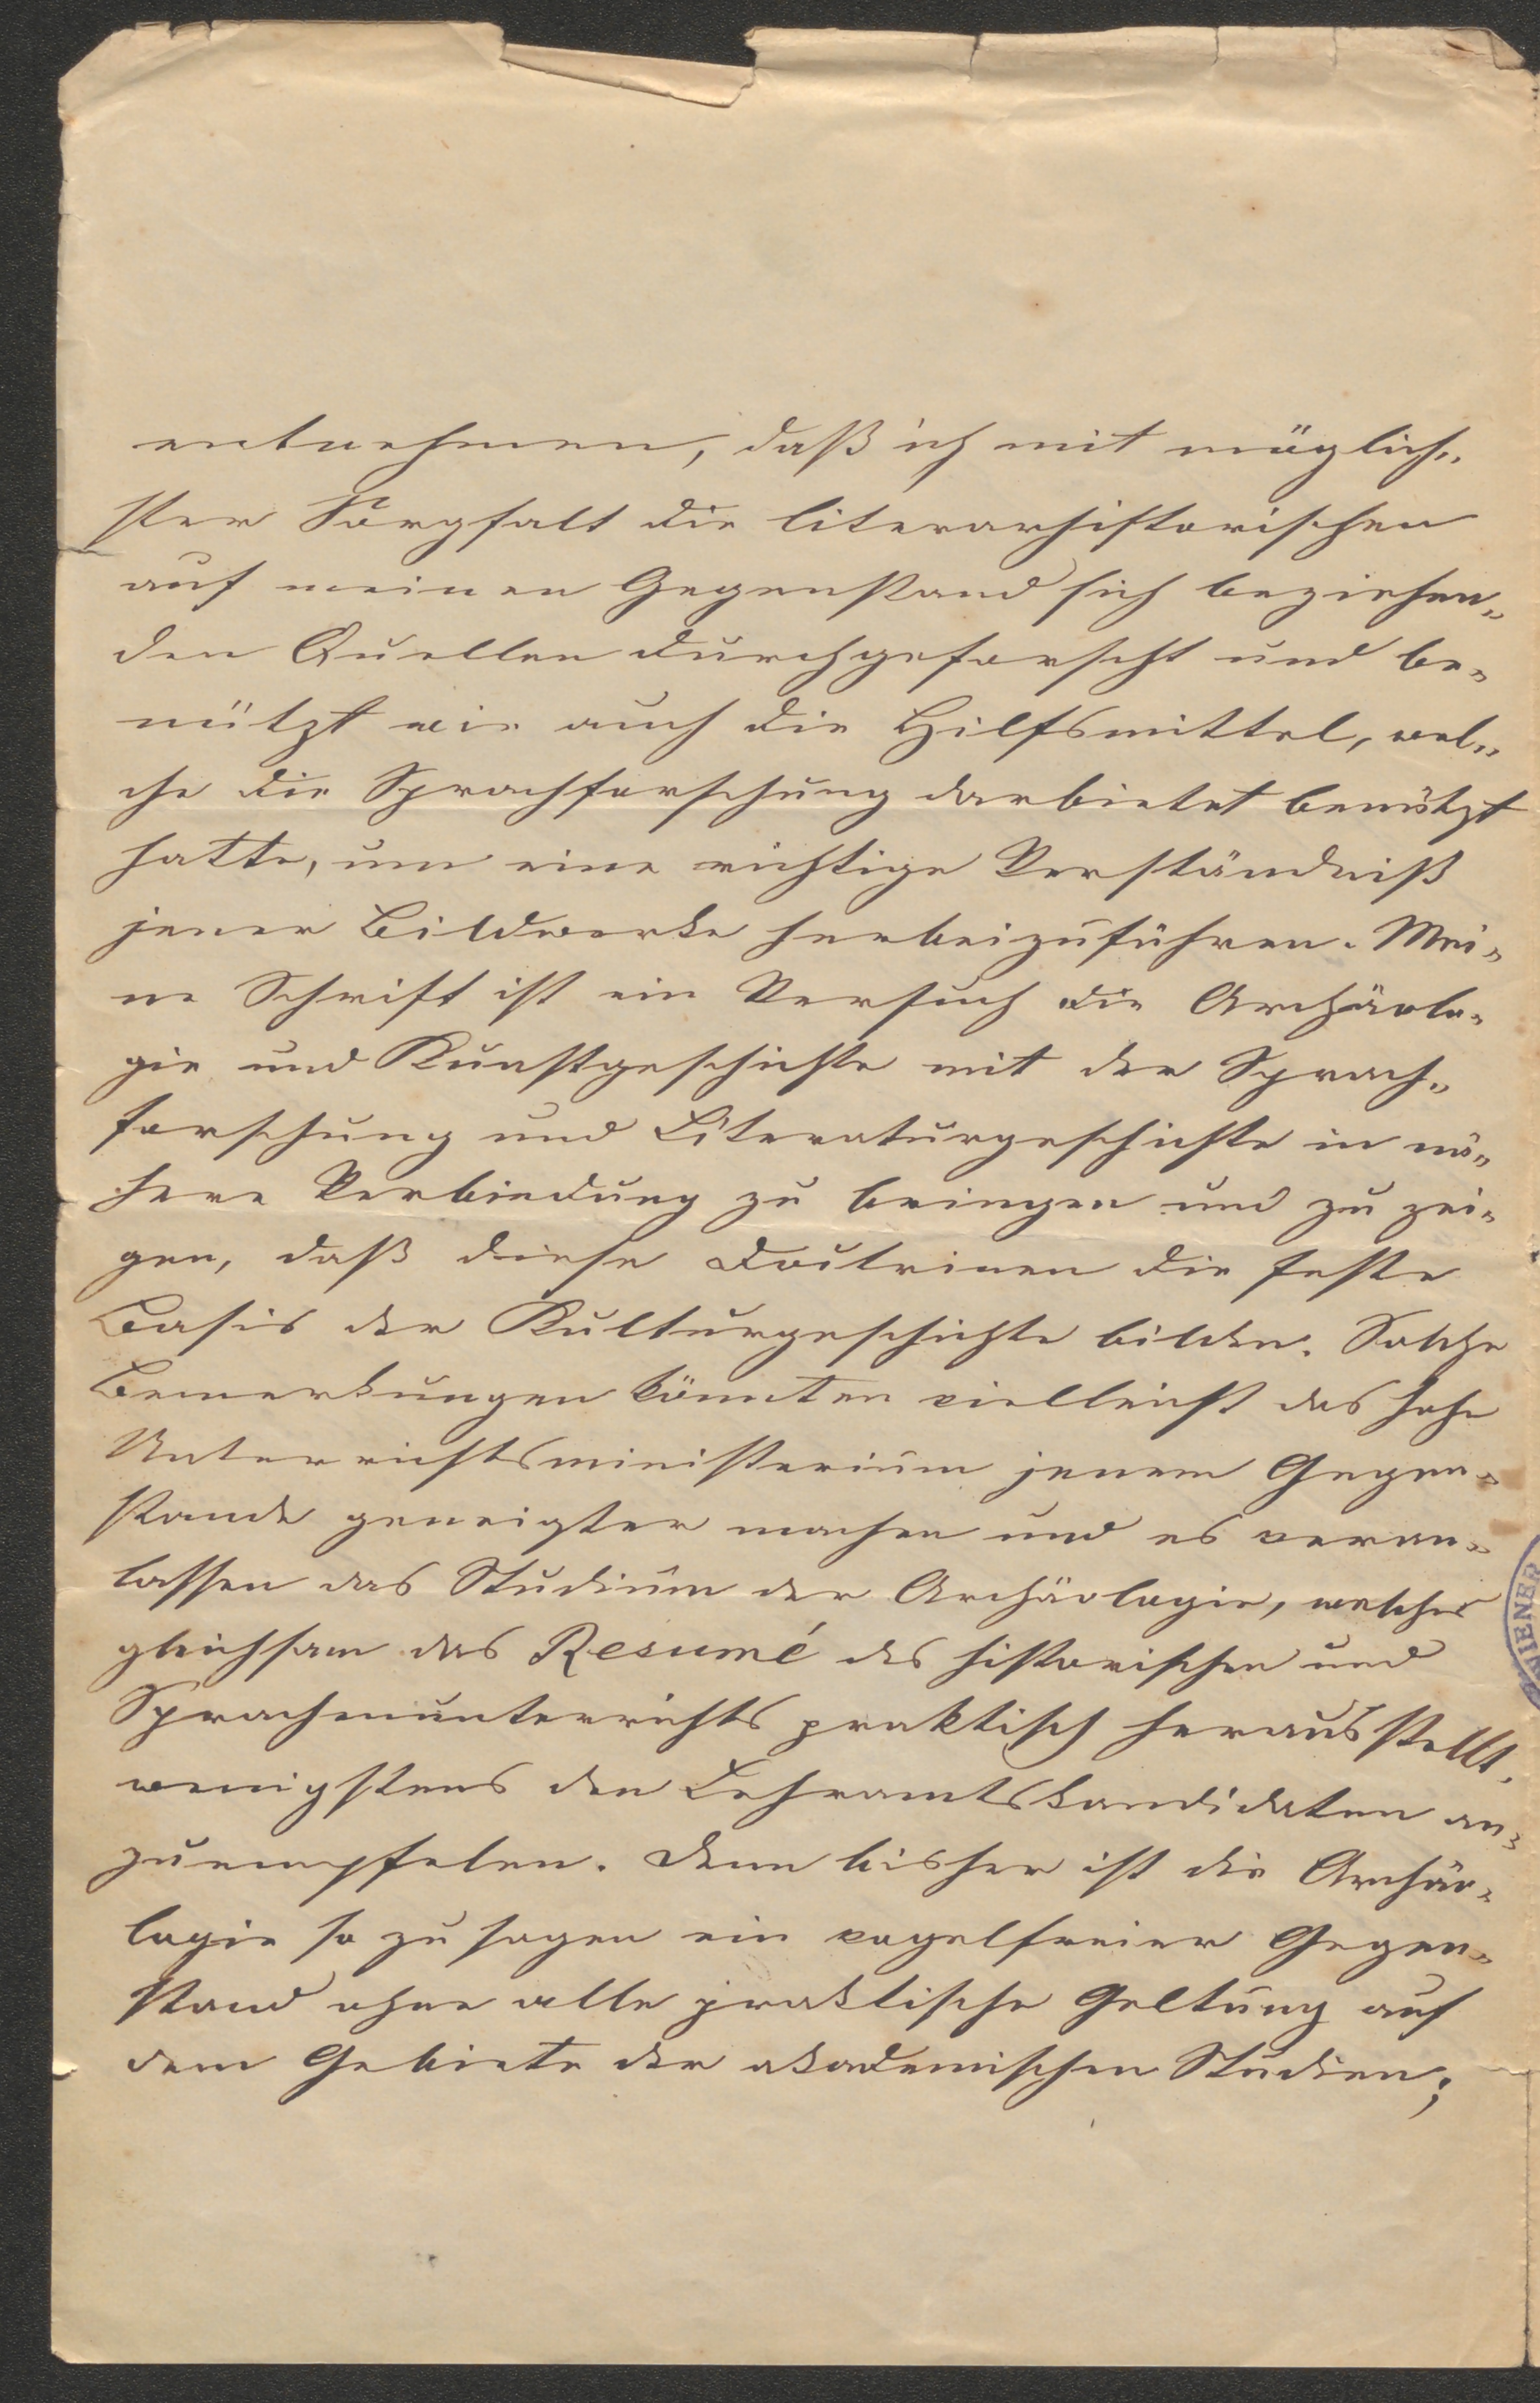 entnehmen, daß ich mit möglich„
ster Sorgfalt die literarhistorischen
auf meinen Gegenstand sich beziehen„
den Quellen durchgeforscht und be„
nützt wie auch die Hilfsmittel, wel„
che die Sprachforschung darbietet benützt
hatte, um eine richtige Verständniß
jener Bildwerke herbeizuführen. Mei„
ne Schrift ist ein Versuch die Archäolo„
gie und Kunstgeschichte mit der Sprach„
forschung und Literaturgeschichte in nä„
here Verbindung zu bringen und zu zei„
gen, daß diese Doctrinen die feste
Basis der Kulturgeschichte bilden. Solche
Bemerkungen könnten vielleicht das hohe
Unterrichtsministerium jenem Gegen„
stande geneigter machen und es veran„
lassen das Studium der Archäologie, welches
gleichsam das Resumé des historischen und
Sprachenunterrichts praktisch herausstellt,
wenigstens den Lehramtskandidaten an„
zuempfelen. Denn bisher ist die Archäo„
logie so zu sagen ein vogelfreier Gegen„
stand ohne alle praktische Geltung auf
dem Gebiete der akademischen Studien;
WIENER